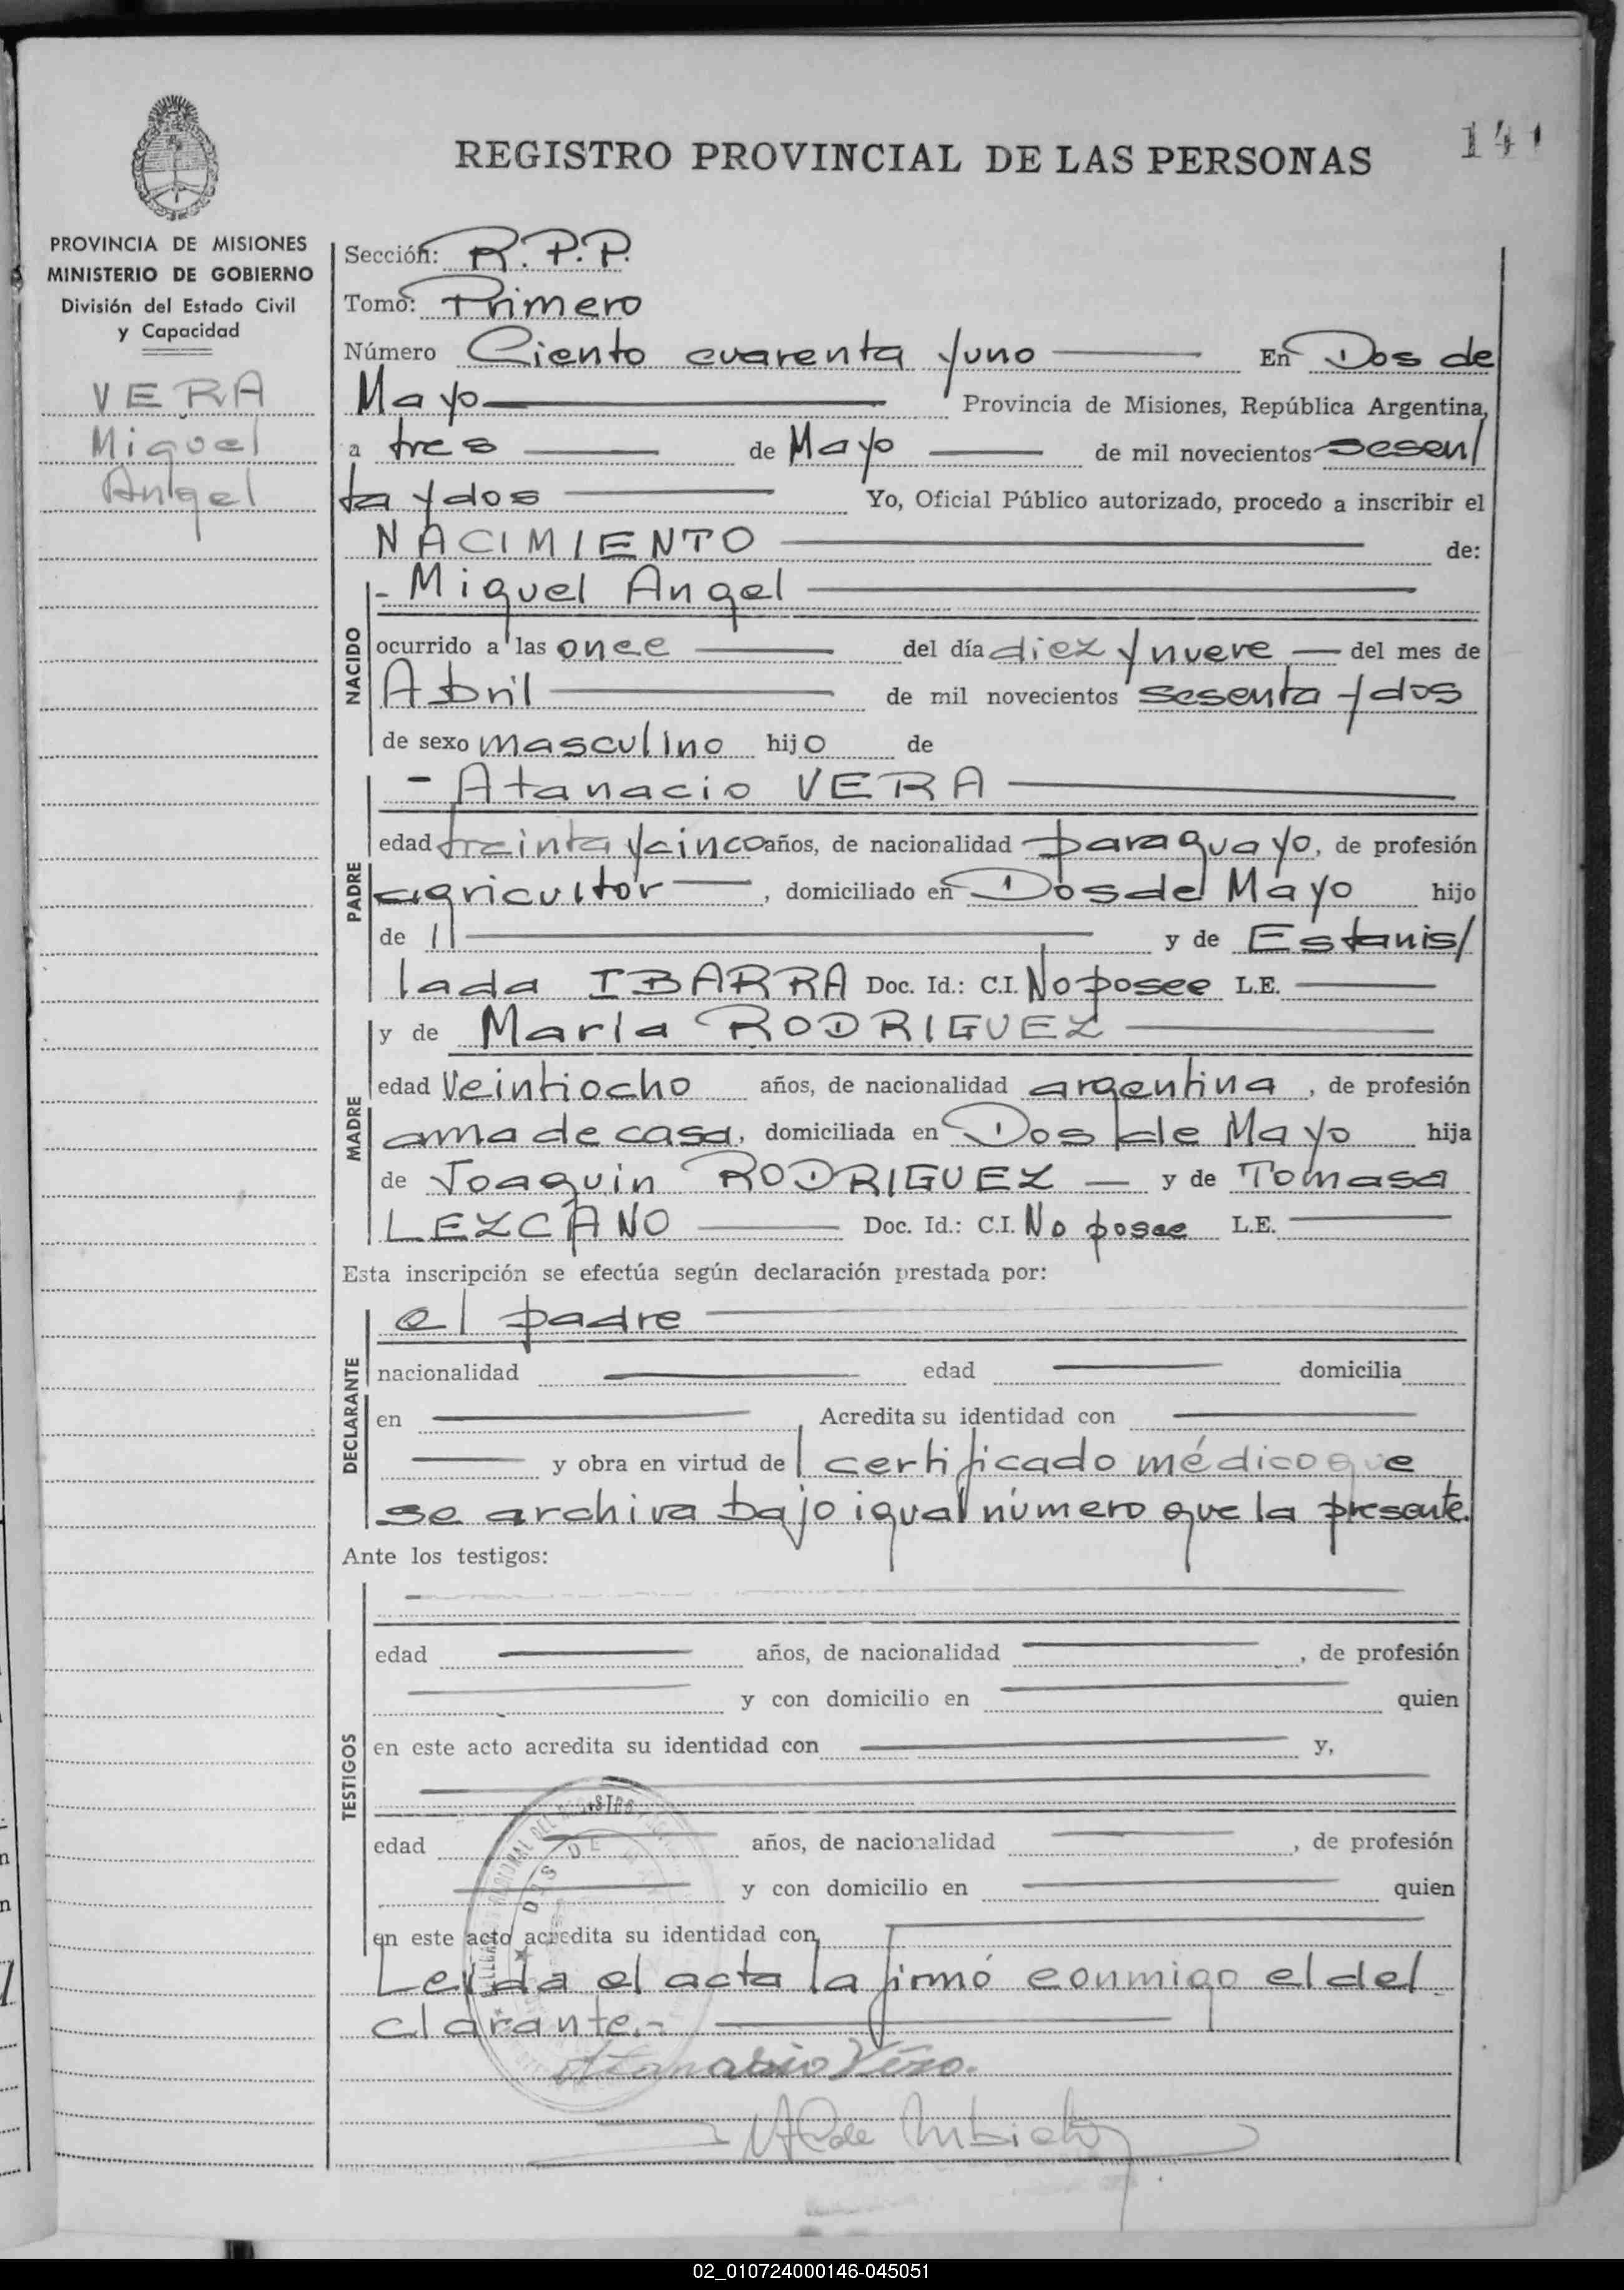 141
REGISTRO PROVINCIAL DE LAS PERSONAS
PROVINCIA DE MISIONES
MINISTERIO DE GOBIERNO
División del Estado Civil
y Capacidad
VERA
Miguel
Angel
Sección: R.P.P.
Tomo: Primero
Número Ciento cuarenta y uno En Dos de
Mayo Provincia de Misiones, República Argentina,
a tres de Mayo de mil novecientos sesen/
ta y dos Yo, Oficial Público autorizado, procedo a inscribir el
NACIMIENTO de:
NACIDO
- Miguel Angel
ocurrido a las once del día diez y nueve del mes de
Abril de mil novecientos sesenta y dos
de sexo masculino hijo de
PADRE
- Atanacio VERA
edad treinta y cinco años, de nacionalidad paraguayo, de profesión
agricultor, domiciliado en Dos de Mayo hijo
de // y de Estanis/
lada IBARRA Doc. Id.: C.I. No posee L.E.
MADRE
y de María RODRIGUEZ
edad Veintiocho años, de nacionalidad argentina, de profesión
ama de casa, domiciliada en Dos de Mayo hija
de Joaquin RODRIGUEZ y de Tomasa
LEZCANO Doc. Id.: C.I. No posee L.E.
Esta inscripción se efectúa según declaración prestada por:
DECLARANTE
el padre
nacionalidad edad domicilia
en Acredita su identidad con
y obra en virtud del certificado médico que
se archiva bajo igual número que la presente.
Ante los testigos:
TESTIGOS
edad años, de nacionalidad , de profesión
y con domicilio en quien
en este acto acredita su identidad con y,
edad años, de nacionalidad , de profesión
y con domicilio en quien
en este acto acredita su identidad con
Leída el acta la firmó conmigo el de/
clarante.-
Atanasio Vera.
DOS DE
02_010724000146-045051